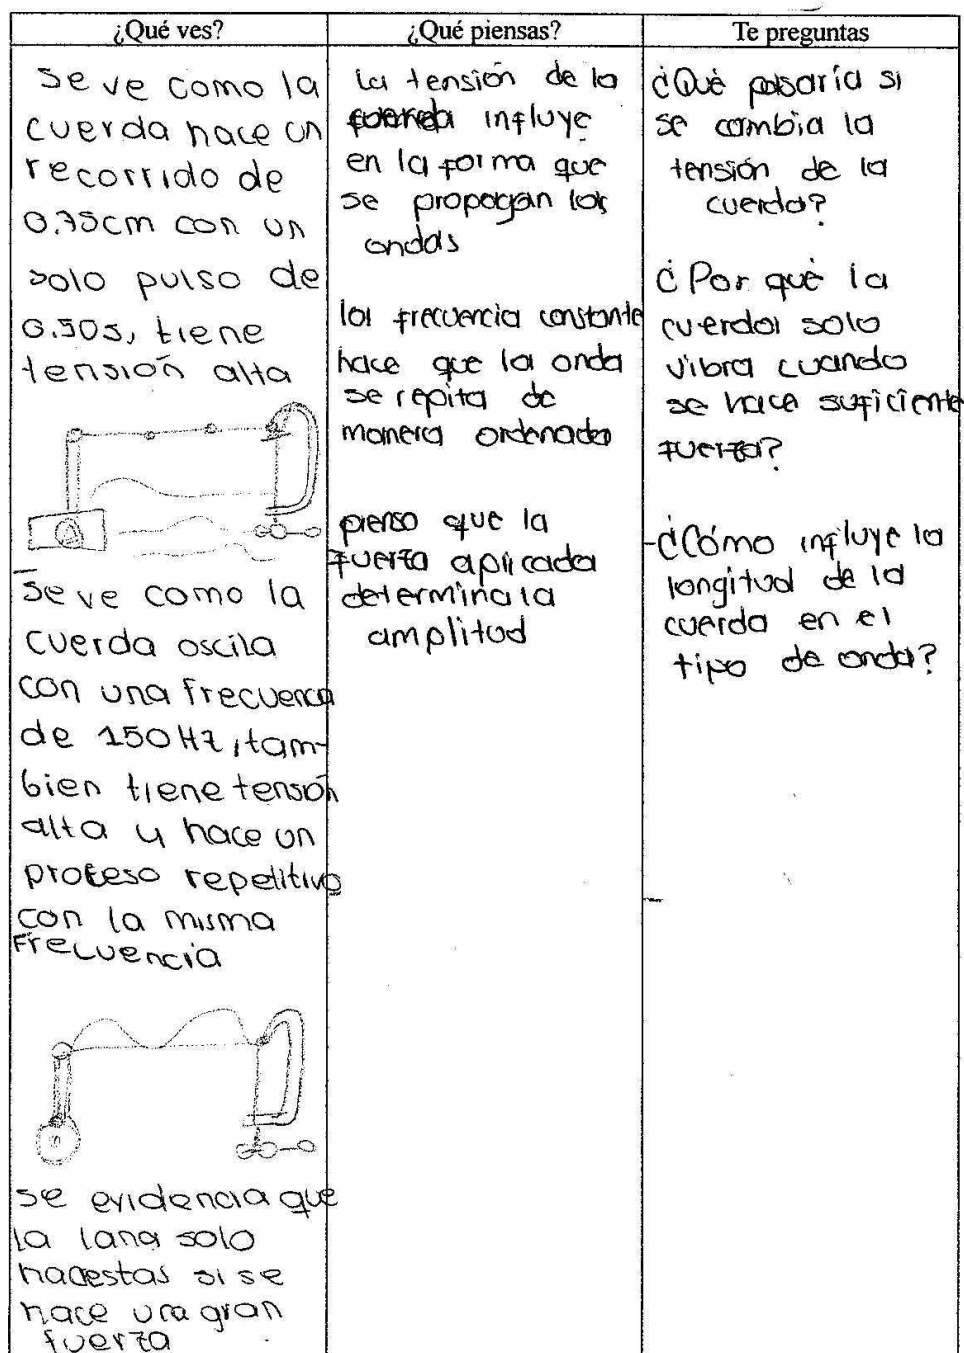 ¿Qué ves?
se ve como la
cuerda hace un
recorrido de
0.75cm con un
solo pulso de
0.50s, tiene
tensión alta
se ve como la
cuerda oscila
con una frecuencia
de 150Hz, tam-
bien tiene tensión
alta y hace un
proceso repetitivo
con la misma
Frecuencia
se evidencia que
la lana solo
si se
hace una gran
fuerza
¿Qué piensas?
la tensión de la
influye
en la forma que
se propagan las
ondas
la frecuencia constante
hace que la onda
se repita de
manera ordenada
pienso que la
fuerza aplicada
determina la
amplitud
Te preguntas
¿Qué pasaría si
se cambia la
tensión de la
cuerda?
¿Por qué la
cuerda solo
vibra cuando
se hace suficiente
fuerza?
-¿Cómo influye la
longitud de la
cuerda en el
tipo de onda?